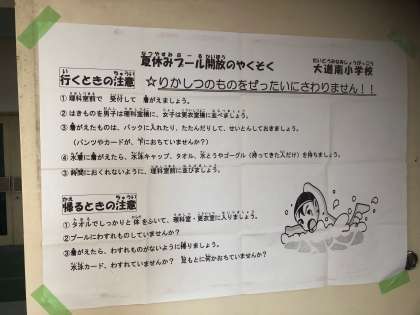 夏休みプール開放のやくそく
大道南小学校
行くときの注意
☆りかしつのものをぜったいにさわりません!!
①理科室前で 受付して 着がえましょう。
②はきものを男子は理科室横に、女子は更衣室横に並べましょう。
③着がえたものは、バックに入れたり、たたんだりして、せいとんしておきましょう。
(パンツやカードが、下におちていませんか?)
④水着に着がえたら、水泳キャップ、タオル、水とうやゴーグル(持ってきた人だけ)を持ちましょう。
⑤時間におくれないように、理科室前に並びましょう。
帰るときの注意
①タオルでしっかりと体をふいて、理科室・更衣室に入りましょう。
②プールにわすれものしていませんか?
③着がえたら、わすれものがないように帰りましょう。
水泳カード、わすれていませんか? 足もとに何かおちていませんか?